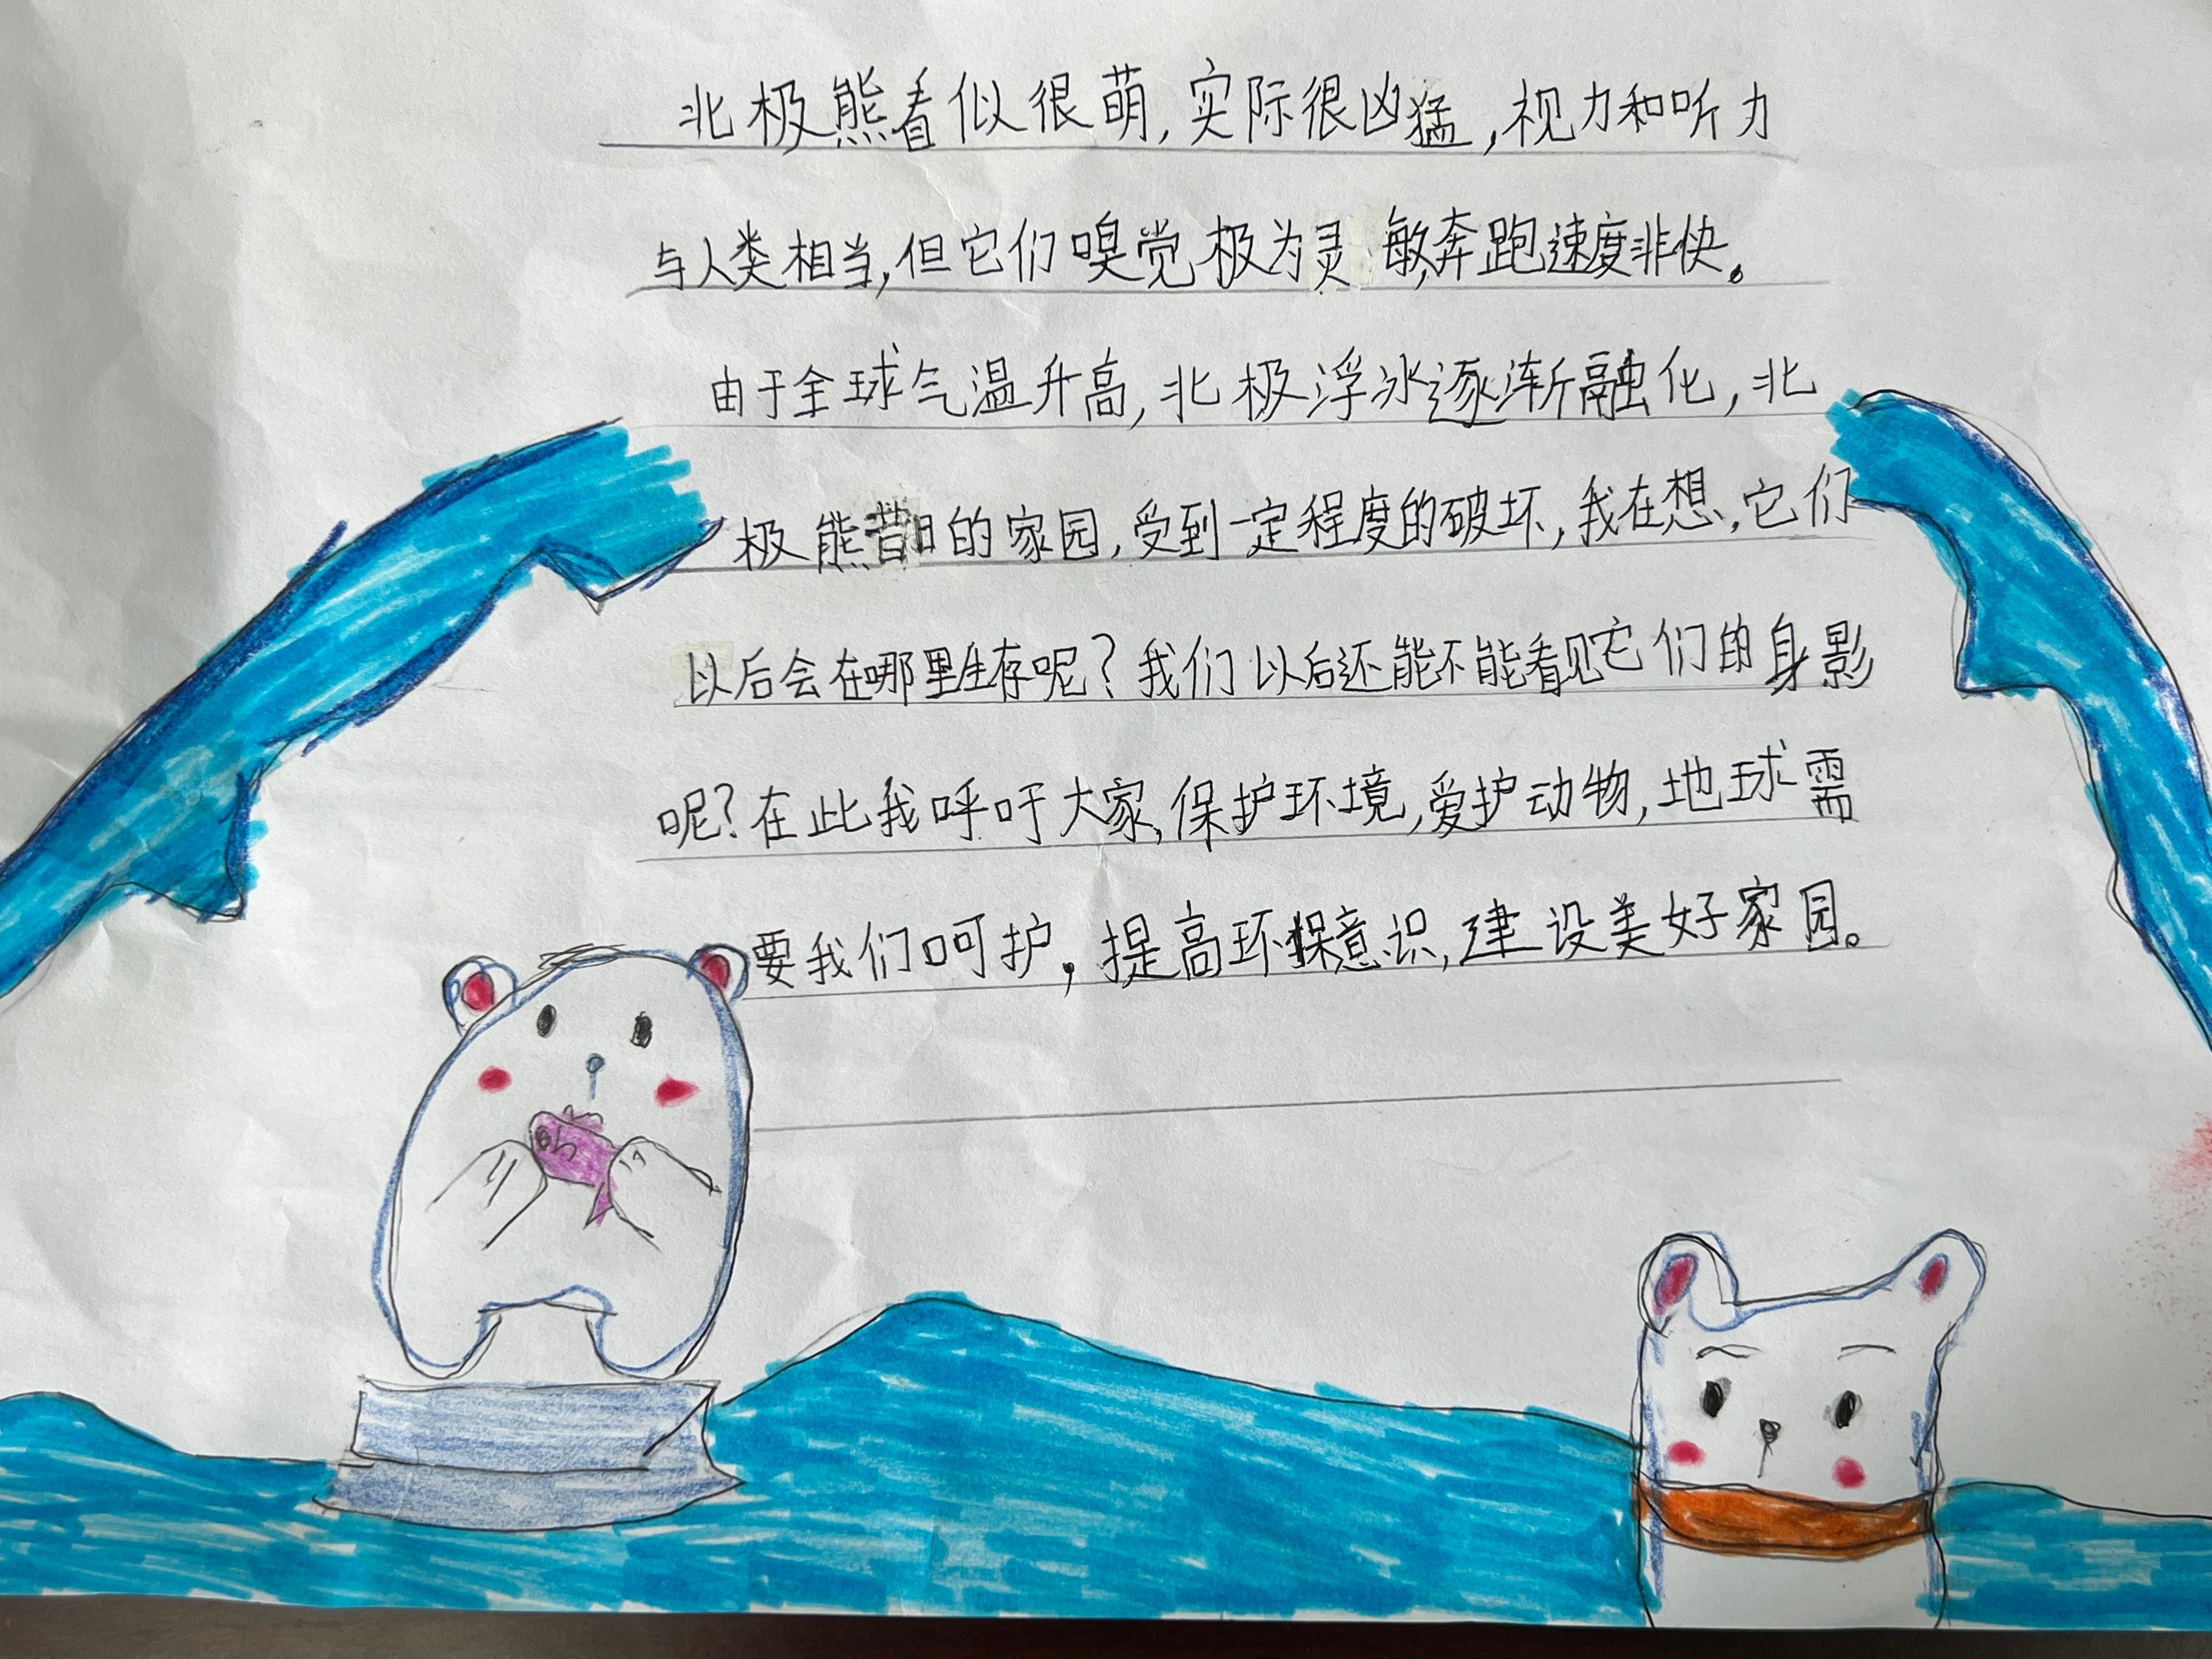 北极熊看似很萌,实际很凶猛,视力和听力
与人类相当,但它们嗅觉极为灵敏,奔跑速度非快。
由于全球气温升高,北极浮冰逐渐融化,北
极熊昔日的家园,受到一定程度的破坏,我在想,它们
以后会在哪里生存呢?我们以后还能不能看见它们的身影
呢?在此我呼吁大家,保护环境,爱护动物,地球需
要我们呵护,提高环保意识,建设美好家园。